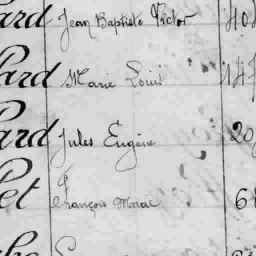 ard Jean Baptiste Victor 40
ard Marie Louis 147
ard Jules Eugène 20
et François Marie 6